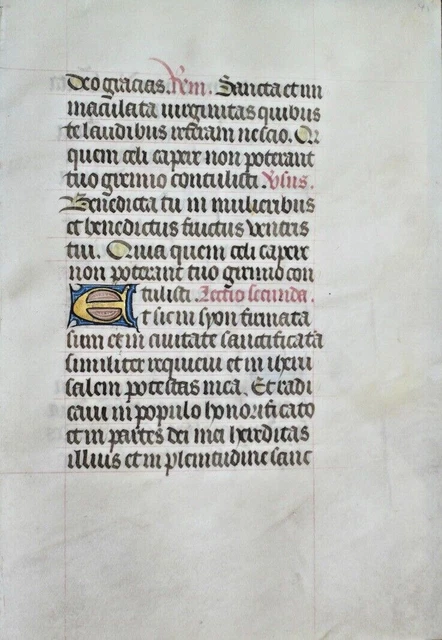 Deo gracias. Resm. Sancta et im
maculata uirginitas quibus
te laudibus referam nescio. Qr
quem celi capere non poterant
tuo gremio contulisti. Vsus.
Benedicta tu in mulieribus
et benedictus fructus uentris
tui. Quia quem celi capere
non poterant tuo gremio con
tulisti. Lectio secunda.
Et sic in syon firmata
sum et in ciuitate sanctificata
similiter requieui et in iheru
salem potestas mea. Et radi
caui in populo honorificato
et in partes dei mei hereditas
illius et in plenitudine sanc